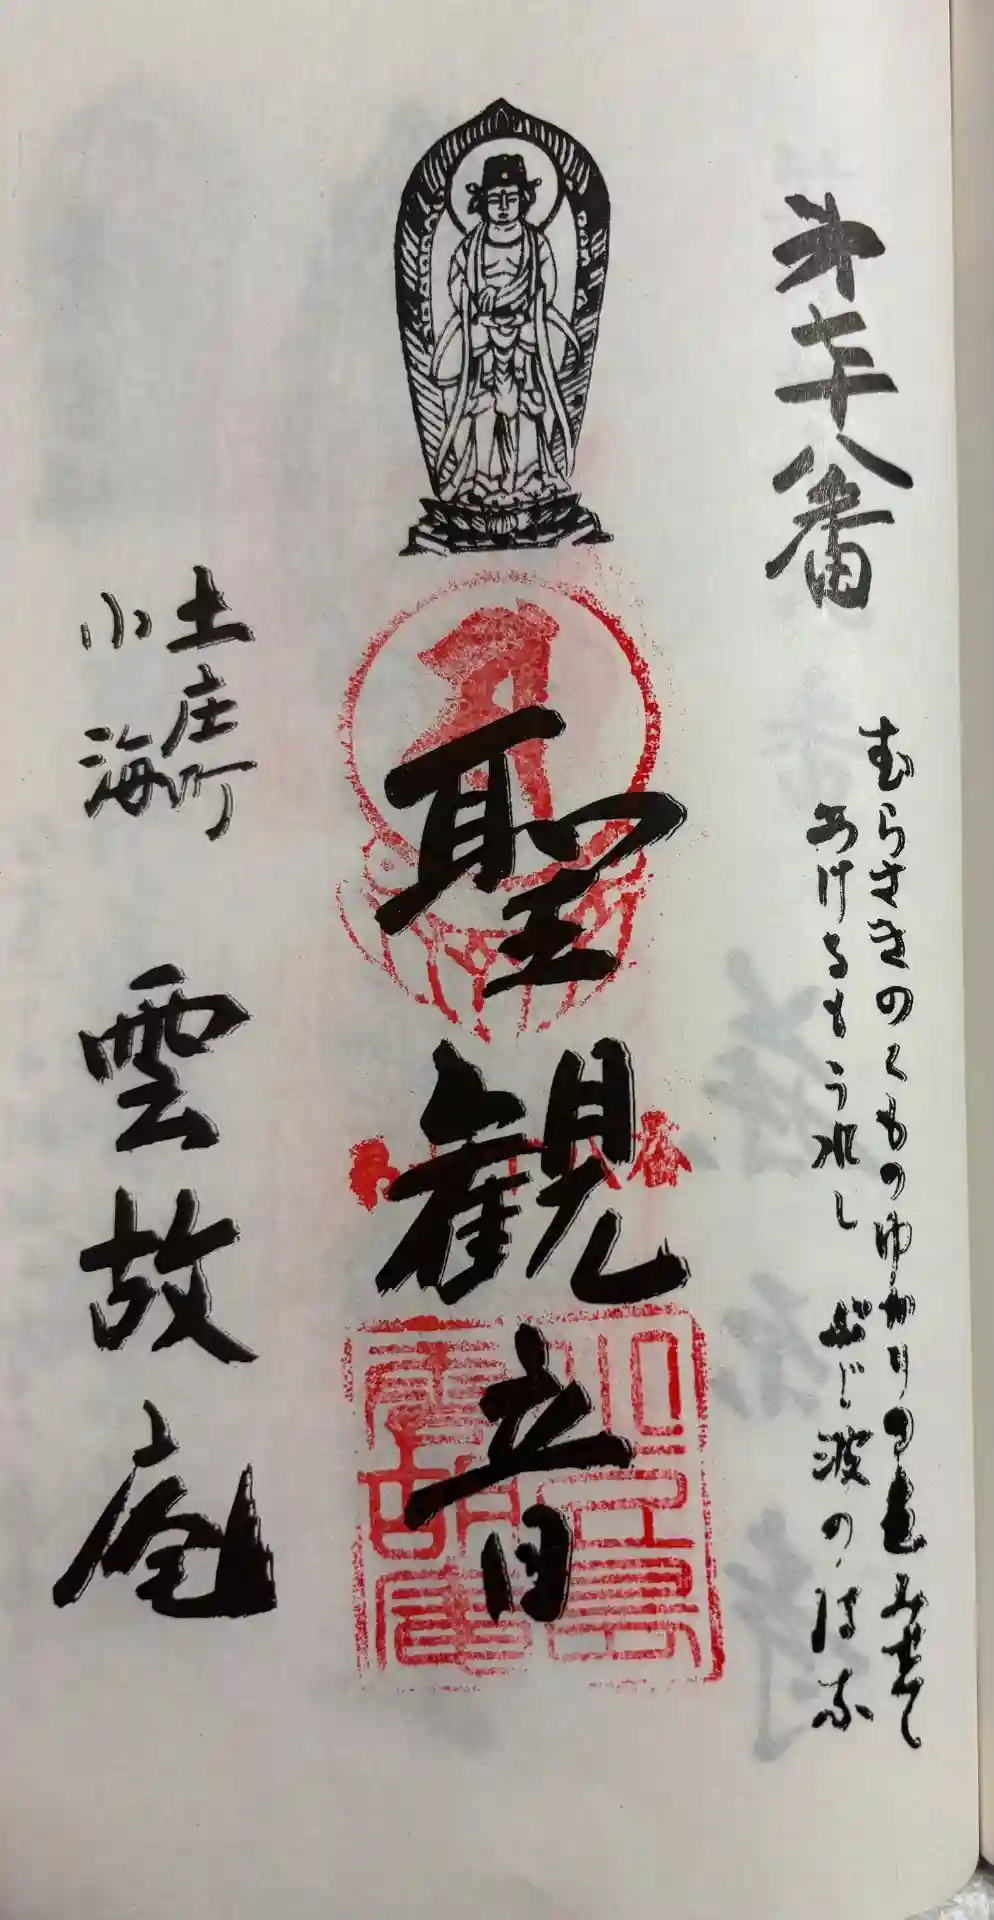 第七十八番
むらさきのくものゆかりの色みせて
あけるもうれしふじ波のはな
聖観音
土庄町
小海
雲故庵